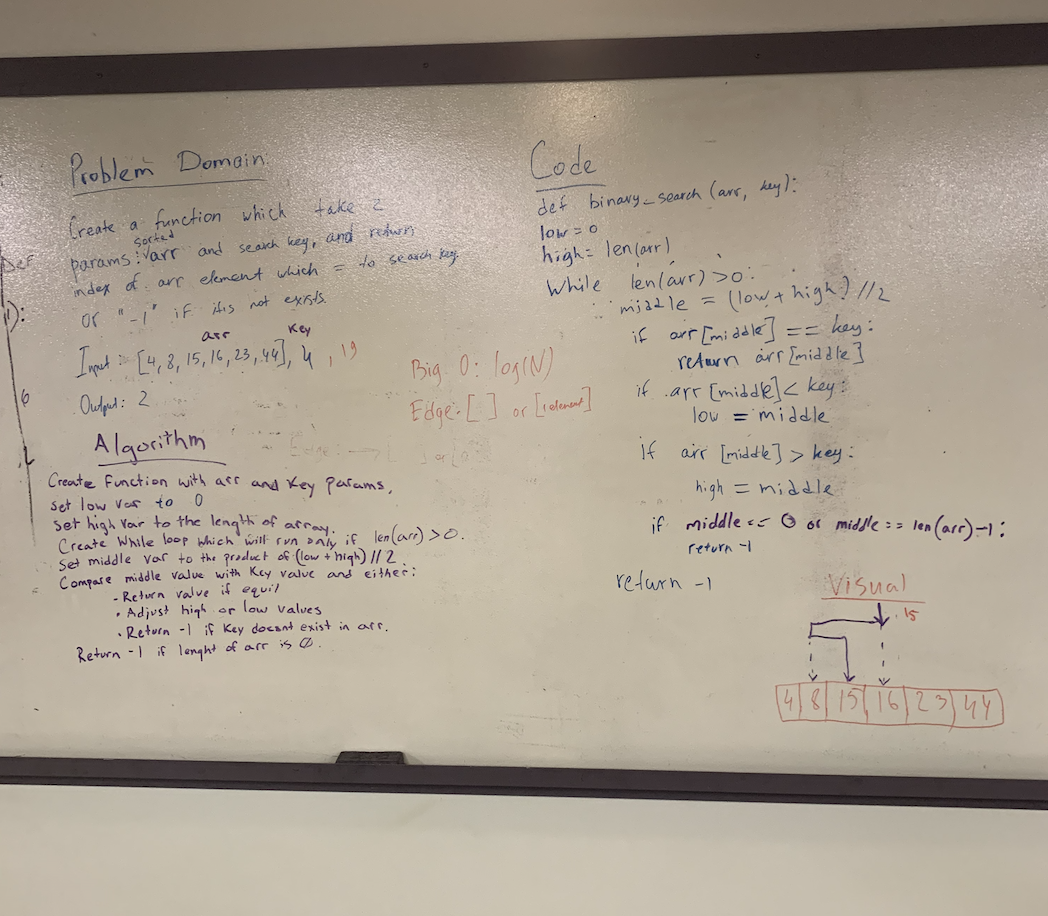 Problem Domain:
Create a function which take 2
sorted
params: arr and search key, and return
index of arr element which = to search key.
or "-1" if itis not exists.
arr key
Input: [4, 8, 15, 16, 23, 44], 4, 19
Output: 2
Algorithm
Create Function with arr and Key Params,
set low var to 0
set high var to the length of array.
Create While loop which will run only if len(arr) > 0.
Set middle var to the product of (low + high) // 2.
Compare middle value with Key value and either:
- Return value if equil
• Adjust high or low values
• Return -1 if Key doesnt exist in arr.
Return -1 if lenght of arr is 0.
DeF
):
6
Big O: log(N)
Edge: [ ] or [1 element]
Code
def binary_search (arr, key):
low = 0
high = len(arr)
While len(arr) > 0:
middle = (low + high) // 2
if arr [middle] == key:
return arr [middle]
if arr [middle] < key:
low = middle
if arr [middle] > key:
high = middle
if middle == 0 or middle == len(arr) - 1:
return -1
return -1
Visual
15
4 8 15 16 23 44